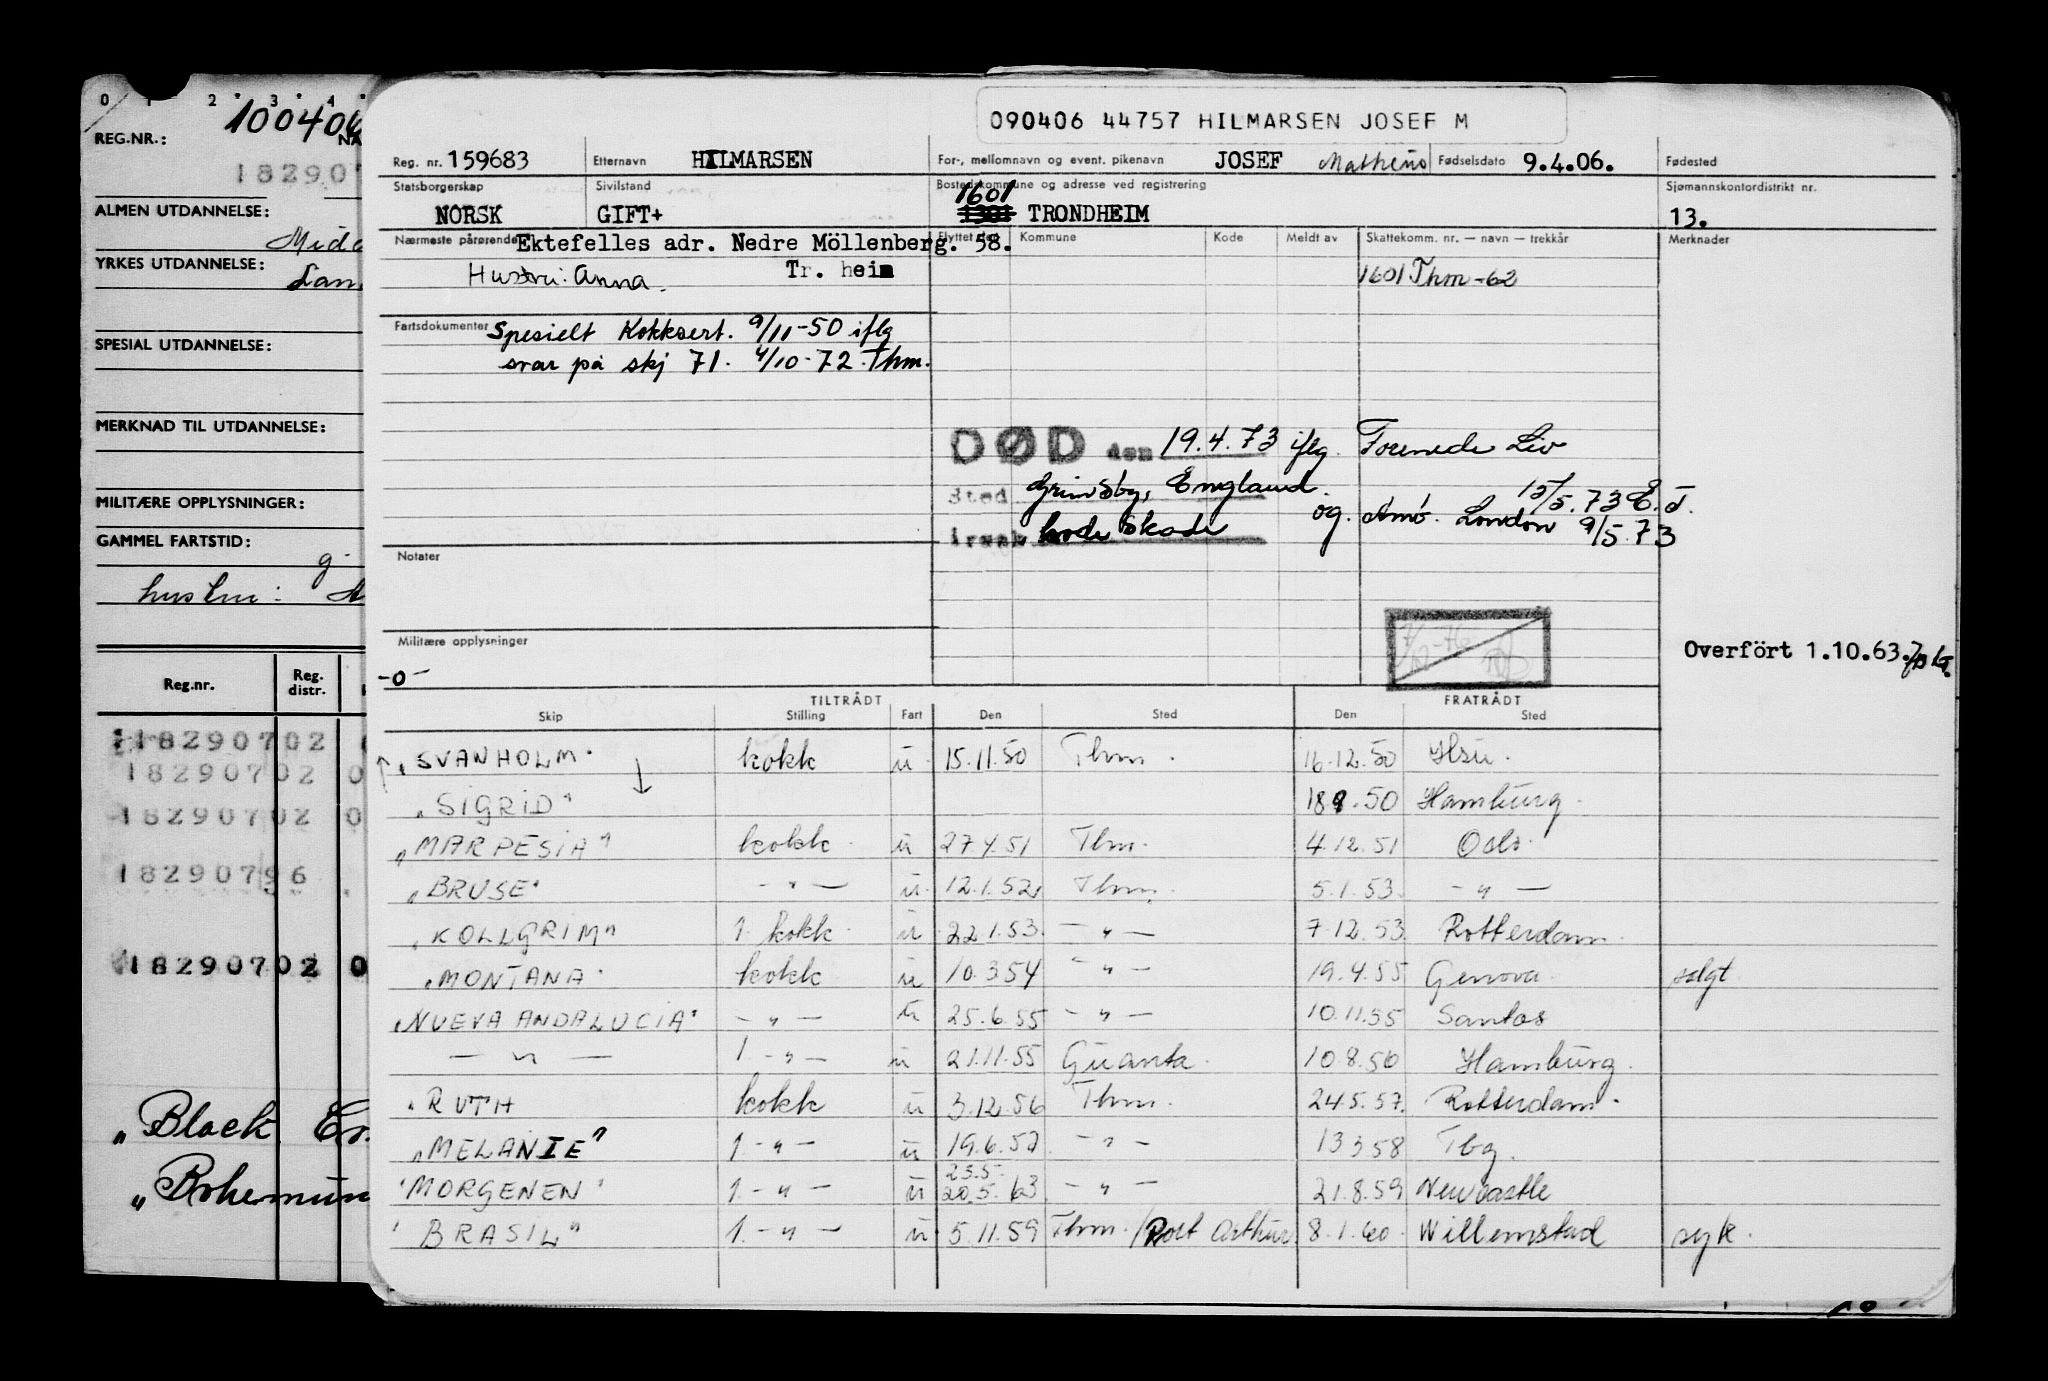 0 1 2 3 4
100406
REG.NR.:
182907
ALMEN UTDANNELSE:
YRKES UTDANNELSE:
SPESIAL UTDANNELSE:
MERKNAD TIL UTDANNELSE:
MILITÆRE OPPLYSNINGER:
GAMMEL FARTSTID:
hustru:
Reg.nr. Reg. distr.
18290702 0
18290702 0
18290702 0
18290796
18290702 0
"Black
090406 44757 HILMARSEN JOSEF M
Reg. nr. 159683 Etternavn HILMARSEN For-, mellomnavn og event. pikenavn JOSEF Matheus Fødselsdato 9.4.06. Fødested
Statsborgerskap Sivilstand Bostedskommune og adresse ved registrering Sjømannskontordistrikt nr.
1601
NORSK GIFT+ 1301 TRONDHEIM 13.
Nærmeste pårørende Ektefelles adr. Nedre Möllenberg. 58. Flyttet Kommune Kode Meldt av Skattekomm. nr. — navn — trekkår Merknader
Hustru: Anna. Tr. heim 1601 Thm-62
Fartsdokumenter Spesielt Kokksert. 9/11-50 iflg
svar på skj 71. 4/10-72 Thm.
DØD den 19.4.73 iflg. Forenede Liv
15/5.73 E.T.
Sted Grimsby, England.
og. Amb. London 9/5.73
årsak hodeskade
Notater
Militære opplysninger
-0-
Overfört 1.10.63.
TILTRÅDT FRATRÅDT
Skip Stilling Fart Den Sted Den Sted
"SVANHOLM" kokk u 15.11.50 Thm. 16.12.50 Hsu.
"SIGRID" 18 .50 Hamburg.
"MARPESIA" kokk u 27.4.51 Thm. 4.12.51 Oslo.
"BRUSE" — " — u 12.1.52 Thm. 5.1.53 — " —
"KOLLGRIM" 1. kokk u 22.1.53 — " — 7.12.53 Rotterdam.
"MONTANA" kokk u 10.3.54 — " — 19.4.55 Genova solgt
"NUEVA ANDALUCIA" — " — u 25.6.55 — " — 10.11.55 Santos
— " — 1. — " — u 21.11.55 Guanta. 10.8.56 Hamburg.
"RUTH kokk u 3.12.56 Thm. 24.5.57. Rotterdam.
"MELANIE" 1. — " — u 19.6.57 — " — 13.3.58 Tbg.
23.5.
"MORGENEN" 1. — " — u 20.5.63 — " — 21.8.59 Newcastle
"BRASIL" 1. — " — u 5.11.59 Thm./Port Arthur 8.1.60. Willemstad syk.